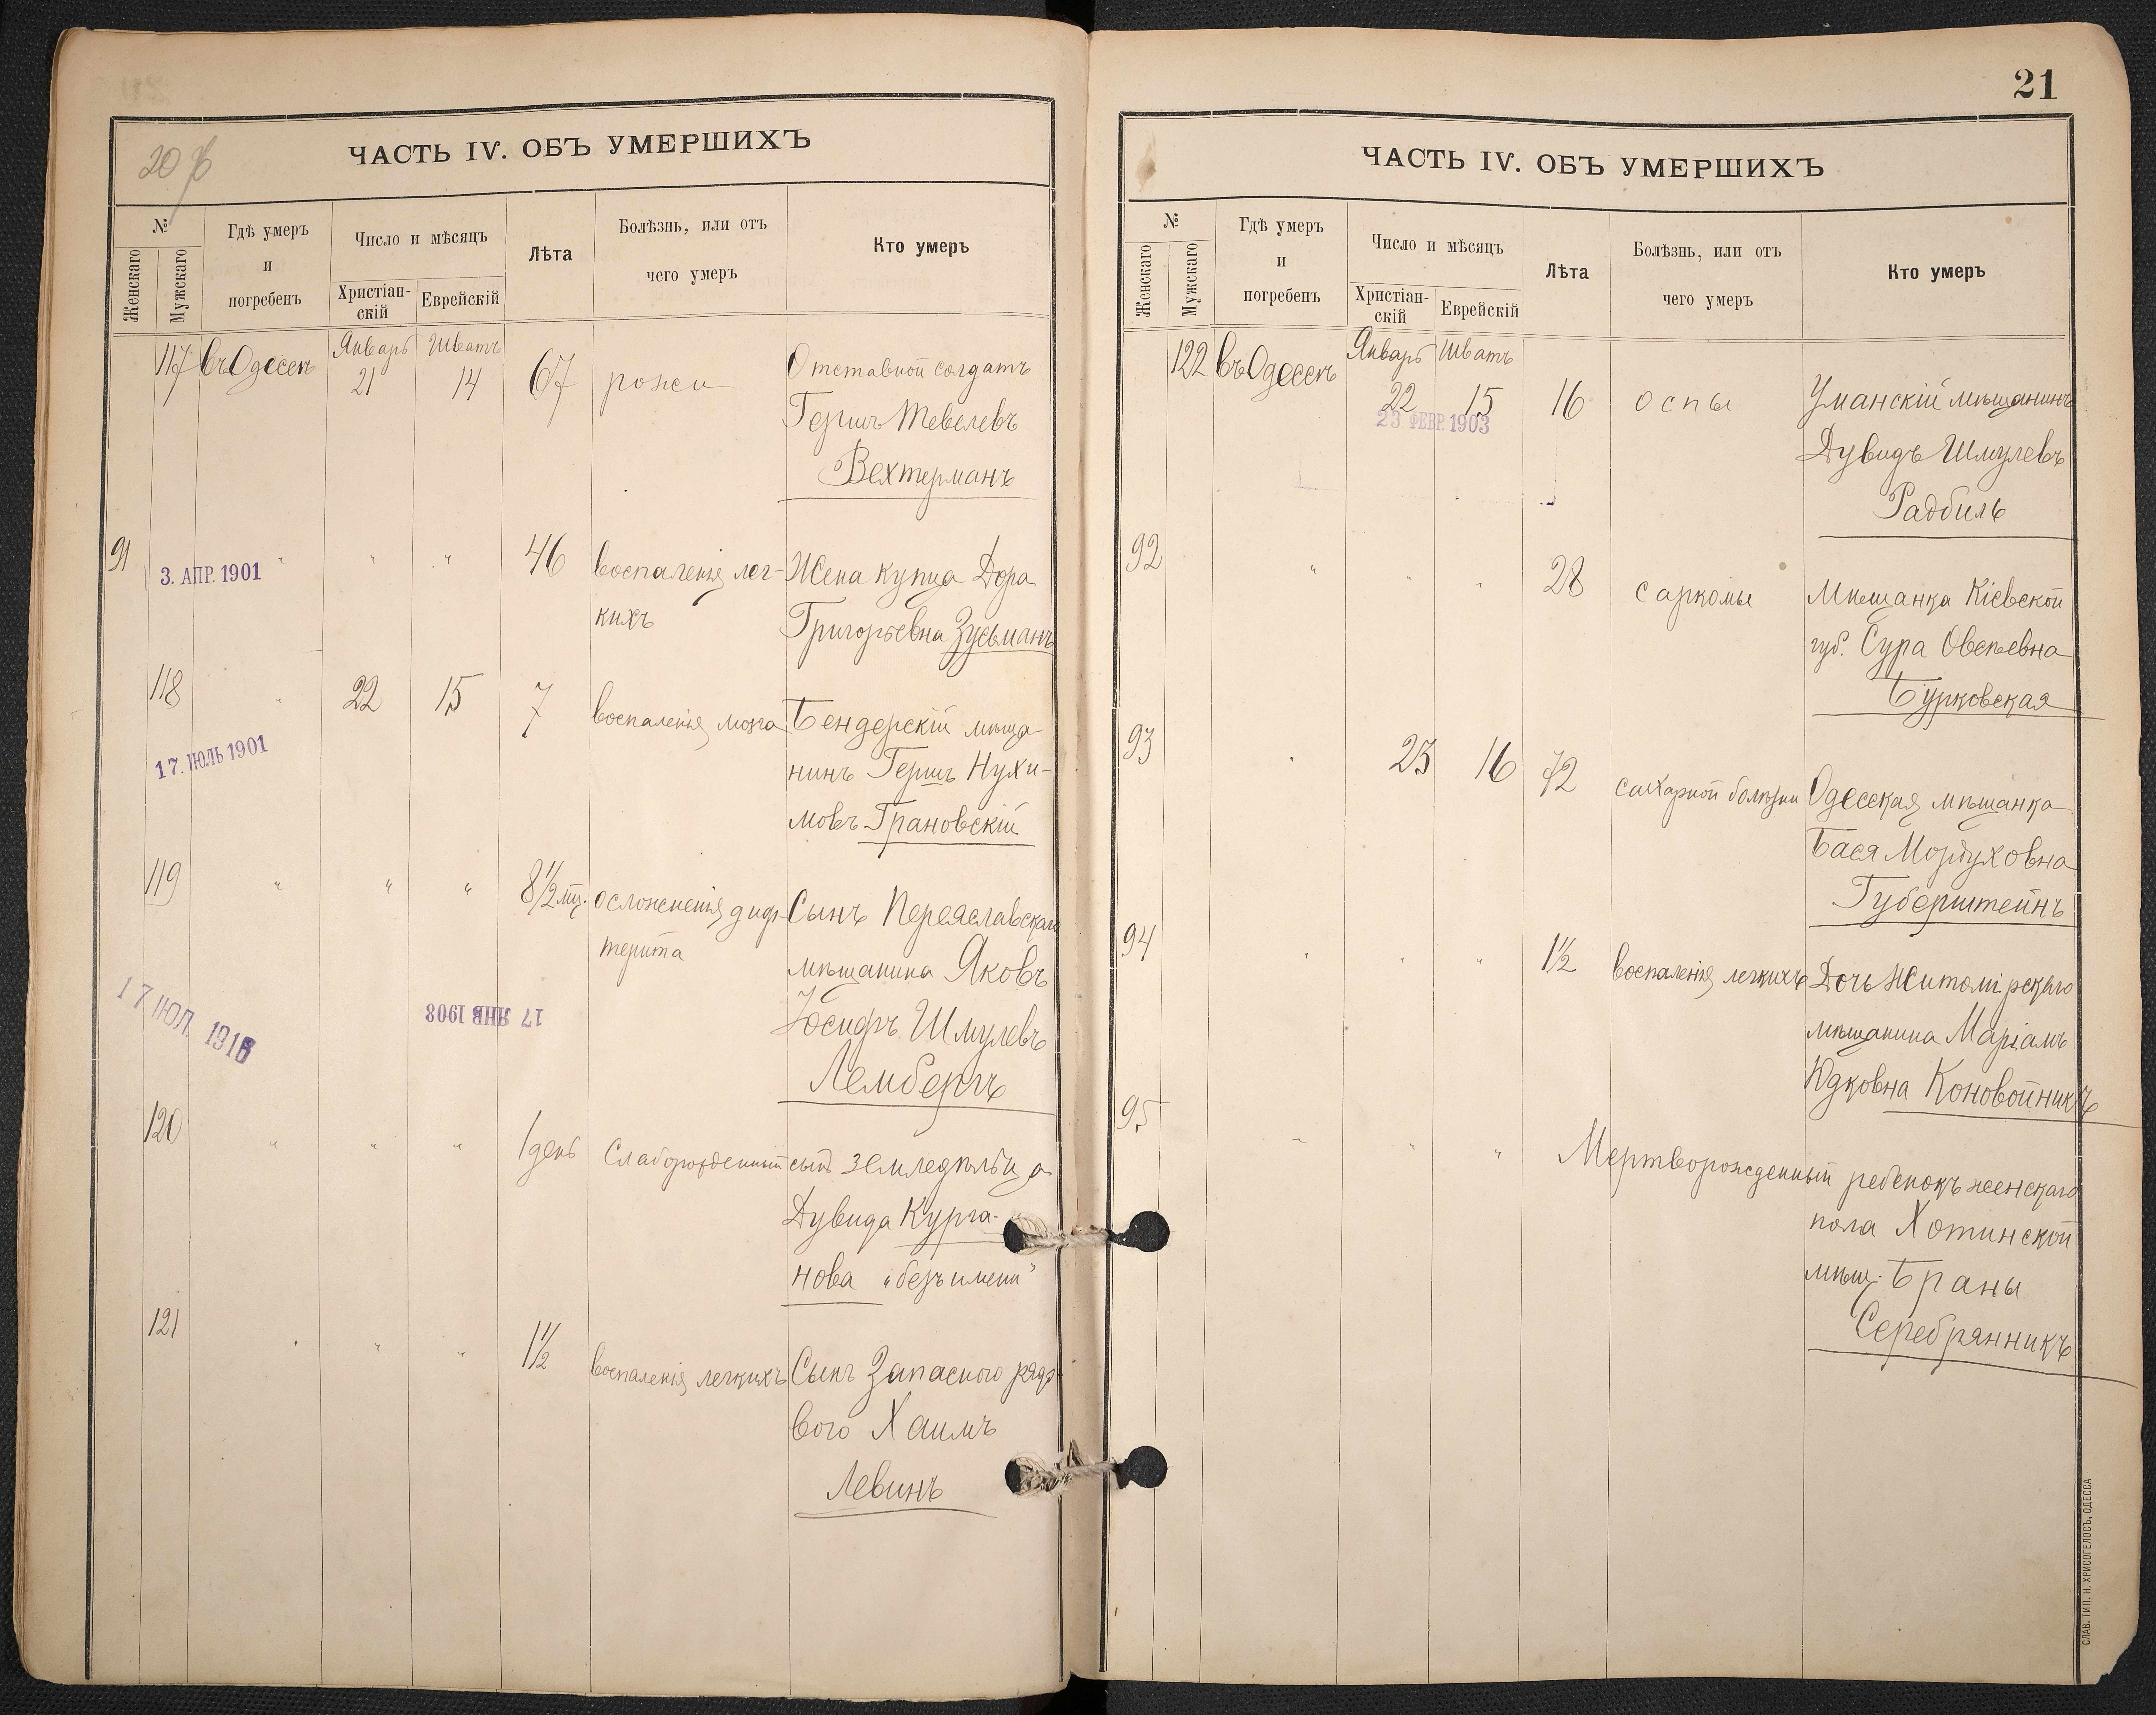 20 об
ЧАСТЬ IV. ОБЪ УМЕРШИХЪ
№
Женскаго
Мужскаго
Гдѣ умеръ
и
погребенъ
Число и мѣсяцъ
Христіан-
скій
Еврейскій
Лѣта
Болѣзнь, или отъ
чего умеръ
Кто умеръ
117 въ Одессѣ Январь 21 Шватъ 14 67 рожи Отставной солдатъ
Гершъ Тевелевъ
Вехтерманъ
91 " " " 46 воспаленія лег- Жена купца Дора
кихъ Григорьевна Зусьманъ
3. АПР. 1901
118 " 22 15 7 воспаленія мозга Бендерскій мѣща-
нинъ Гершъ Нухи-
мовъ Грановскій
17. ІЮЛЬ 1901
119 " " " 8 1/2 мц. осложненія диф- Сынъ Переяславскаго
терита мѣщанина Яковъ
Іосифъ Шмулевъ
Лембергъ
17 ІЮЛ. 1916
17 ЯНВ 1908
120 " " " 1 день Слаборожденный сынъ земледѣльца
Дувида Курга-
нова „безъ имени"
121 " " " 1 1/2 воспаленія легкихъ Сынъ Запаснаго рядо-
вого Хаимъ
Левинъ
21
ЧАСТЬ IV. ОБЪ УМЕРШИХЪ
№
Женскаго
Мужскаго
Гдѣ умеръ
и
погребенъ
Число и мѣсяцъ
Христіан-
скій
Еврейскій
Лѣта
Болѣзнь, или отъ
чего умеръ
Кто умеръ
122 въ Одессѣ Январь 22 Шватъ 15 16 оспы Уманскій мѣщанинъ
23 ФЕВР. 1903
Дувидъ Шмулевъ
Радбиль
92 " " " 28 саркомы Мѣщанка Кіевской
губ. Сура Овсеевна
Бурковская
93 " 23 16 72 сахарной болѣзни Одесская мѣщанка
Бася Мордуховна
Губерштейнъ
94 " " " 1 1/2 воспаленія легкихъ Дочь Житомірскаго
мѣщанина Маріамъ
Юдковна Коновойникъ
95 " " " Мертворожденный ребенокъ женскаго
пола Хотинской
мѣщ. Браны
Серебрянникъ
СЛАВ. ТИП. Н. ХРИСОГЕЛОСЪ, ОДЕССА